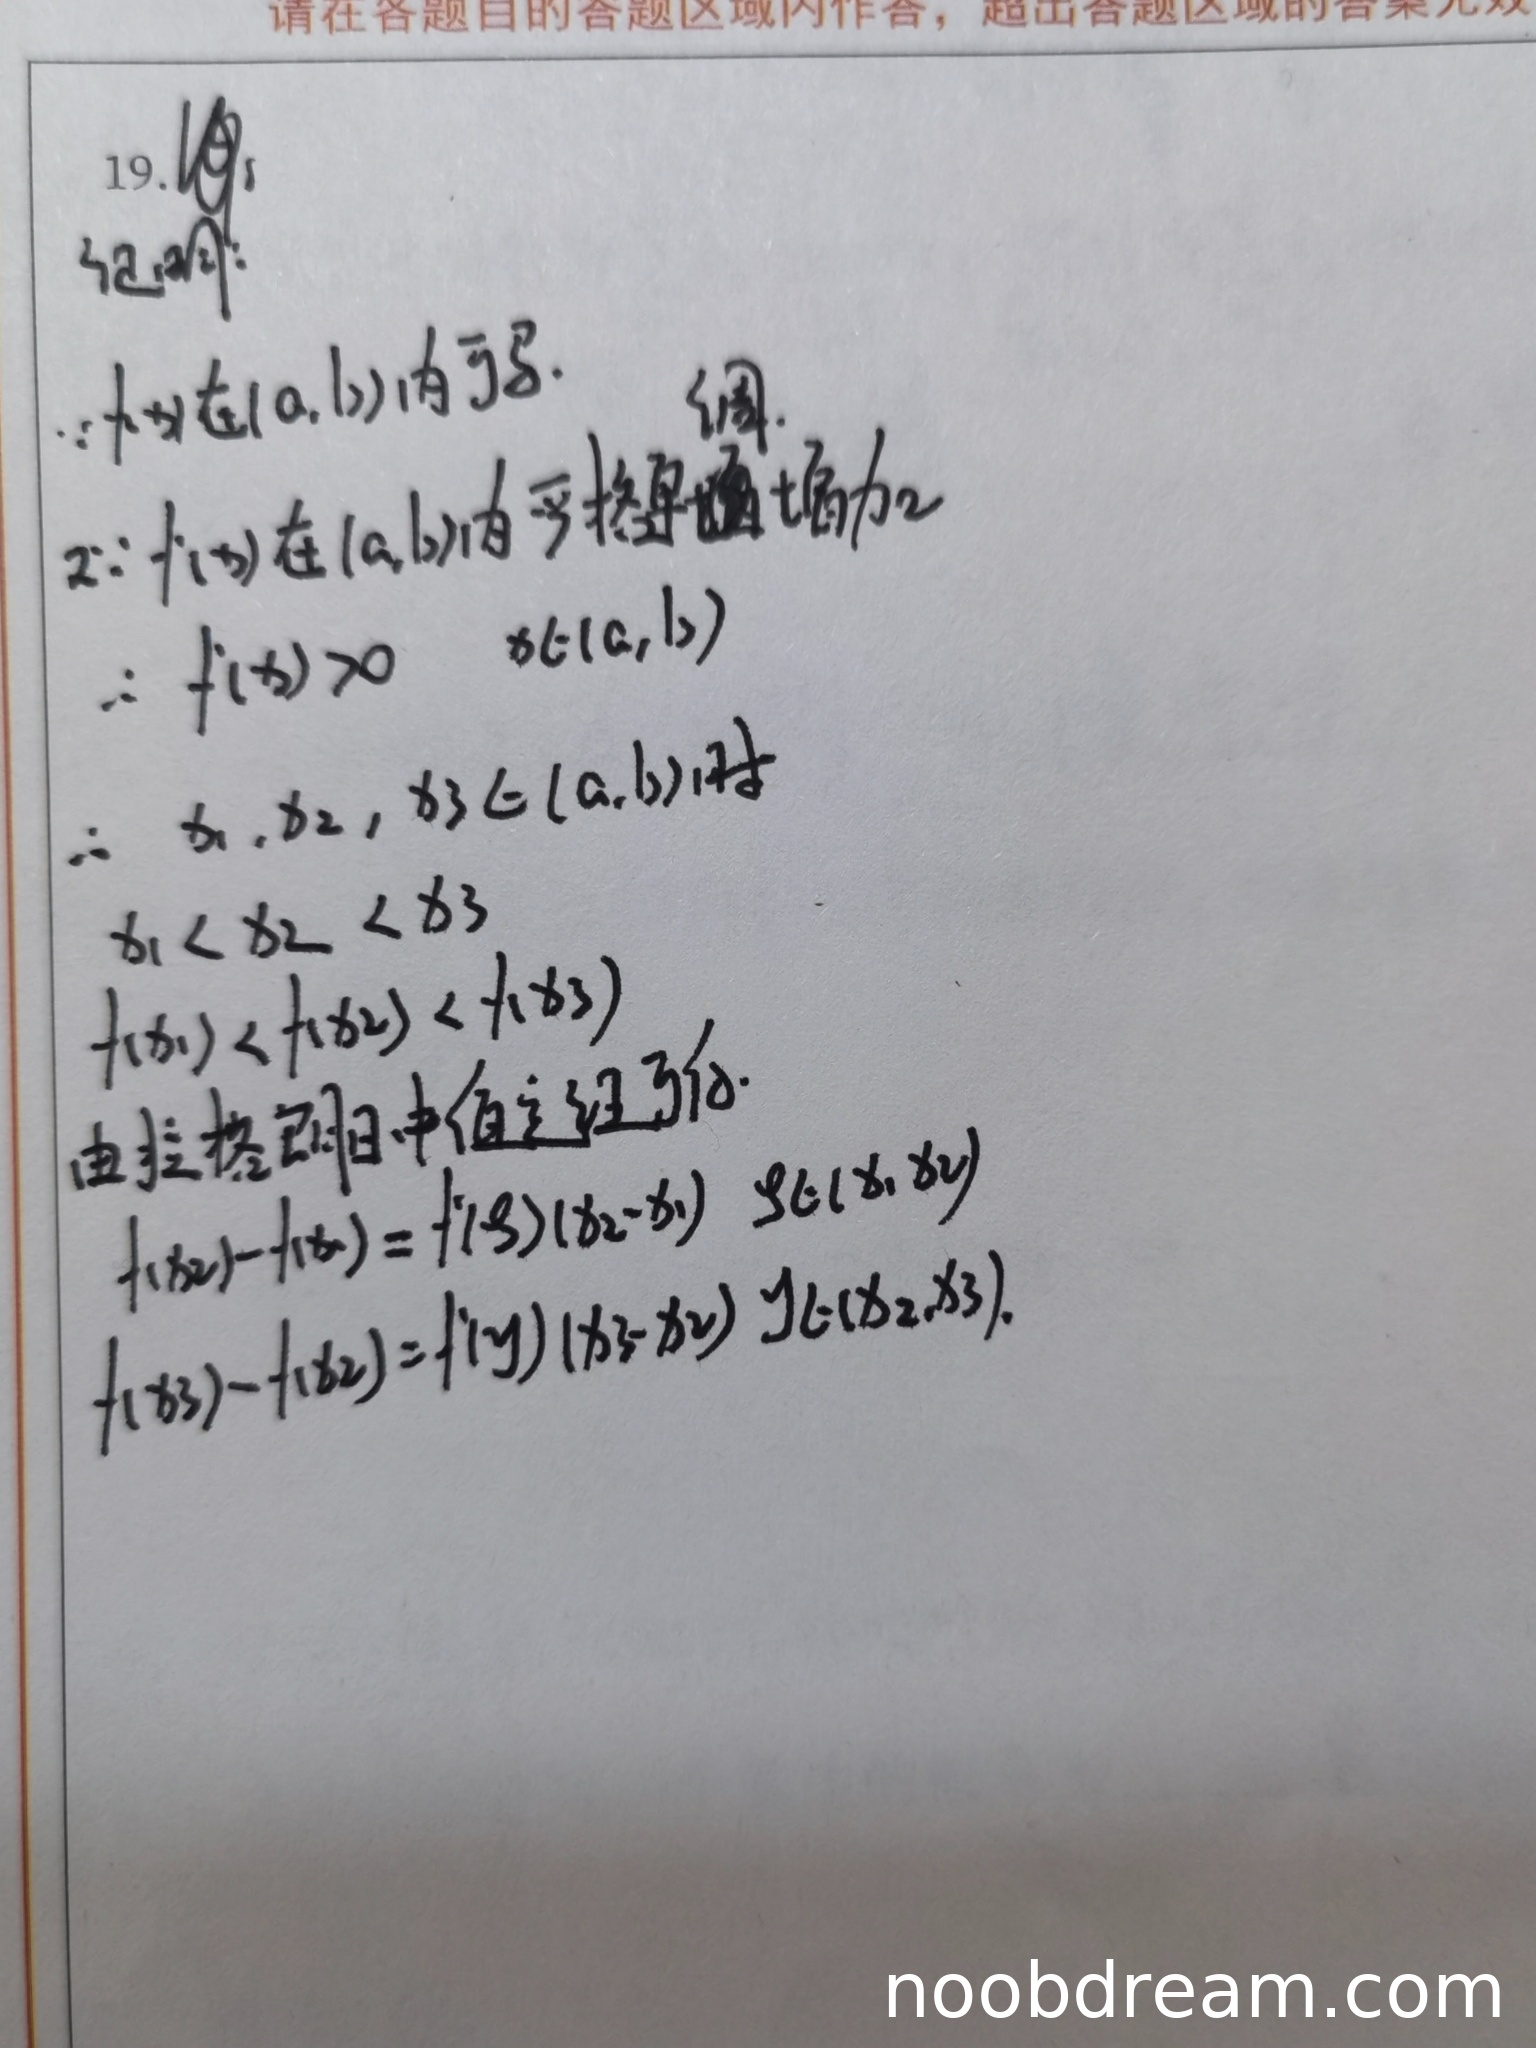 请在各题目的答题区域内作答，超出答题区域的答案无效
19.
证明:
∵ f(x)在(a,b)内可导.
又∵ f'(x)在(a,b)内严格单调增加
∴ f'(x)>0 x∈(a,b)
∴ x1,x2,x3∈(a,b)时
x1<x2<x3
f(x1)<f(x2)<f(x3)
由拉格朗日中值定理可得.
f(x2)-f(x1)=f'(ξ)(x2-x1) ξ∈(x1,x2)
f(x3)-f(x2)=f'(y)(x3-x2) y∈(x2,x3).
noobdream.com